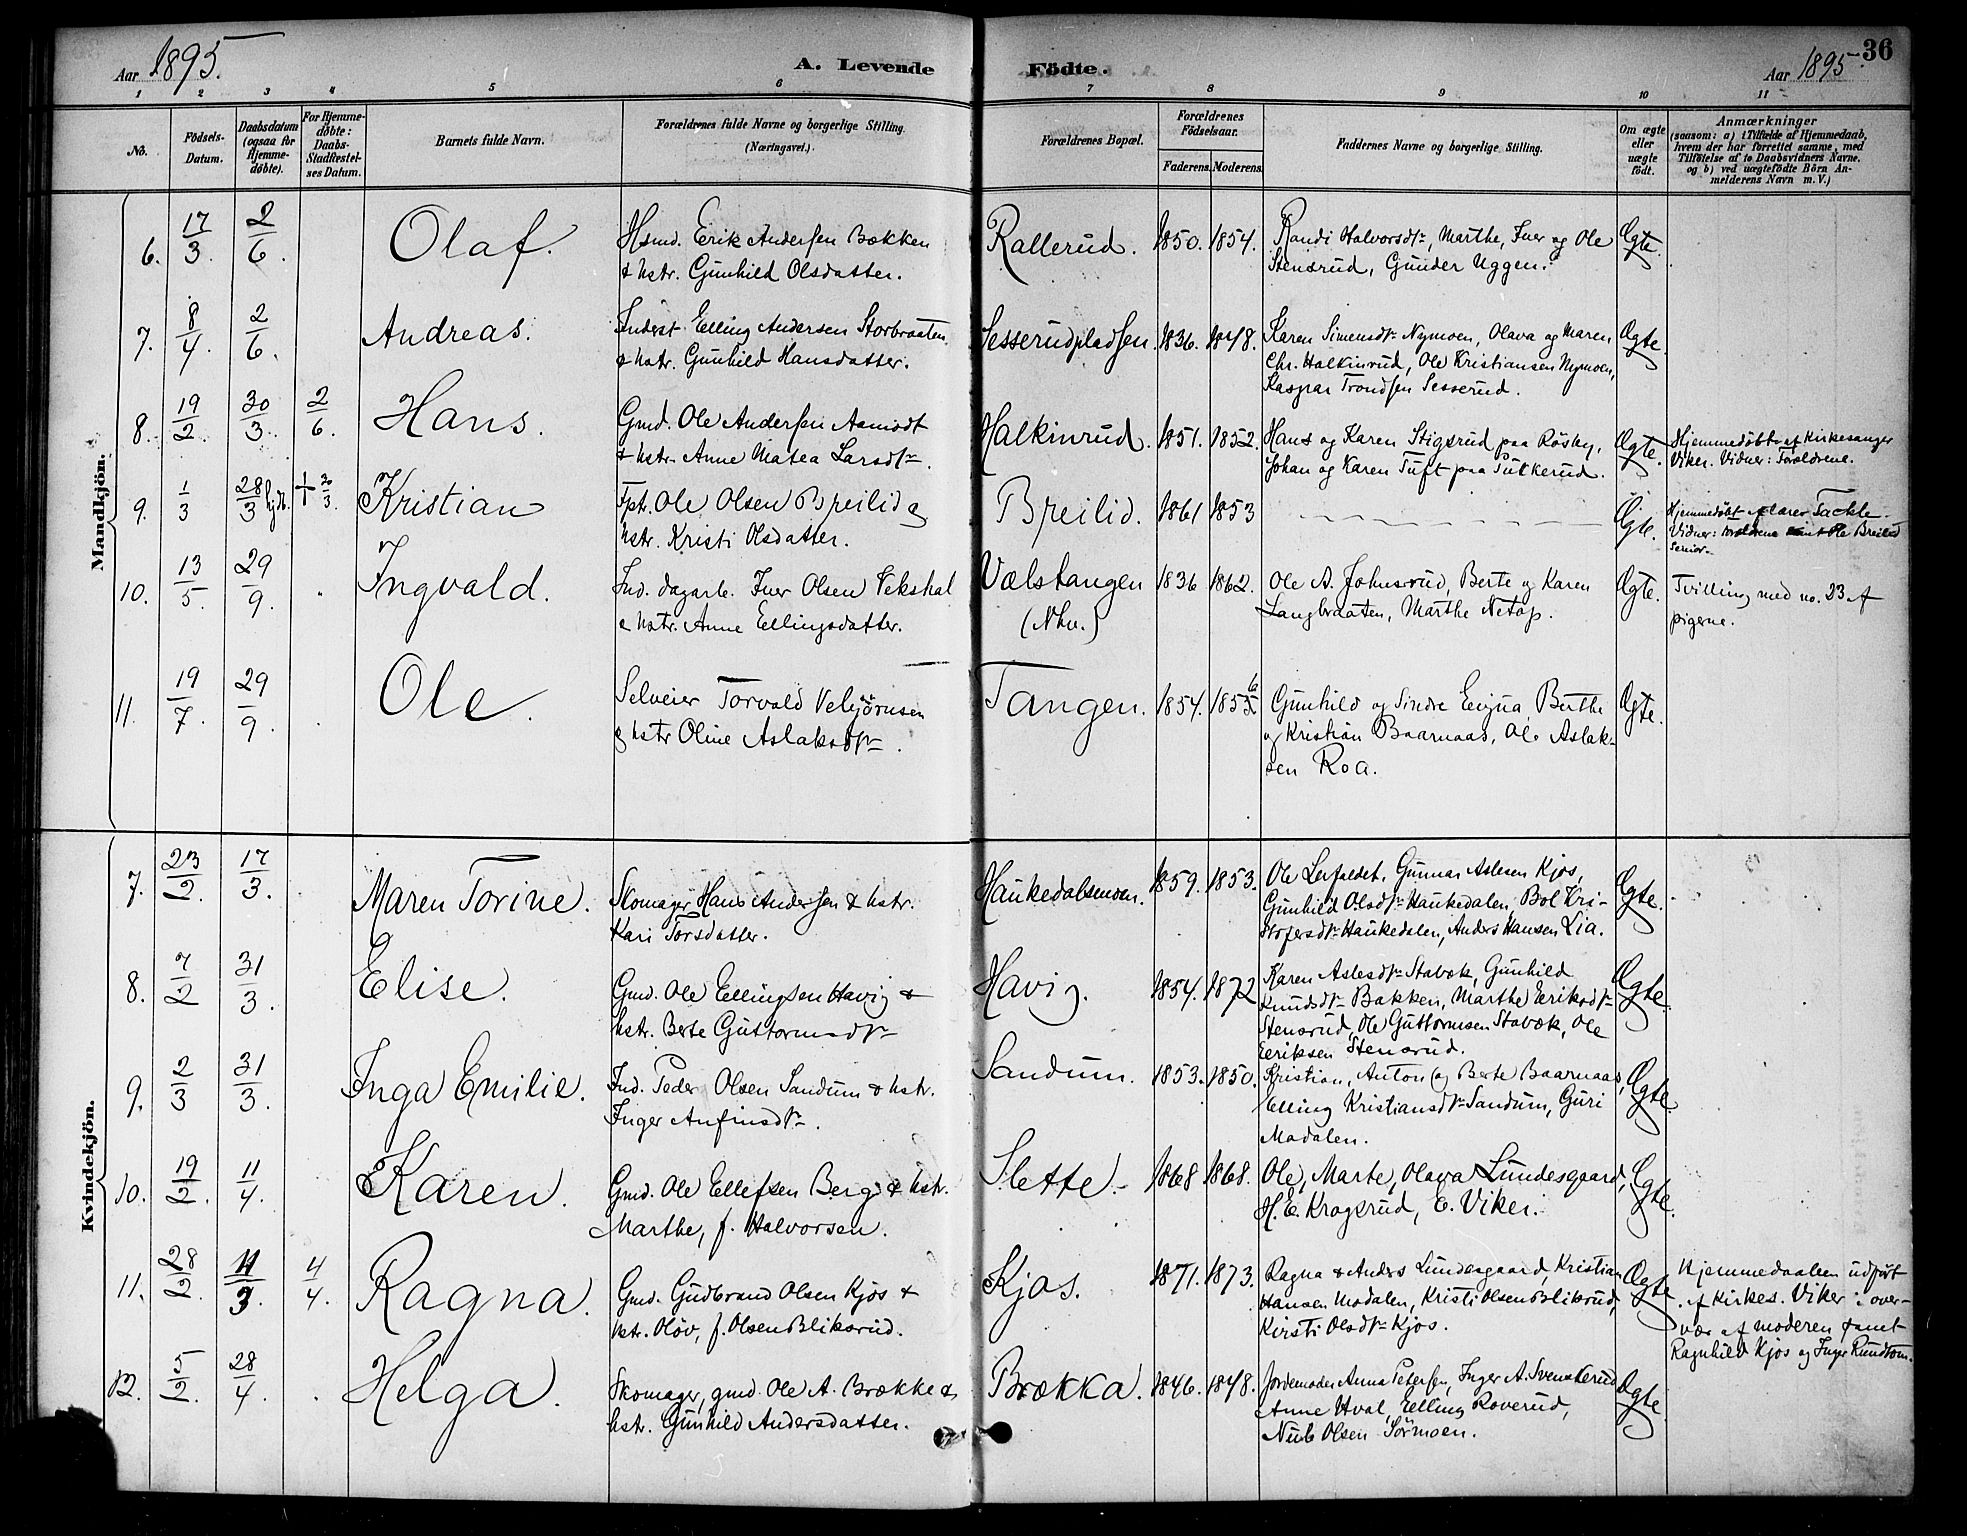 Aar 1895.
A. Levende
Födte.
Aar 1895.
36
1 2 3 4 5 6 7 8 9 10 11
No.
Födsels-
Datum.
Daabsdatum
(ogsaa for
Hjemme-
döbte).
For Hjemme-
döbte:
Daabs-
Stadfæstel-
ses Datum.
Barnets fulde Navn.
Forældrenes fulde Navne og borgerlige Stilling.
(Næringsvei.)
Forældrenes Bopæl.
Forældrenes
Födselsaar.
Faderens. Moderens.
Faddernes Navne og borgerlige Stilling.
Om ægte
eller
uægte
födt.
Anmærkninger
(saasom: a) i Tilfælde af Hjemmedaab,
hvem der har forrettet samme, med
Tilföielse af to Daabsvidners Navne.
og b) ved uægtefödte Börn An-
melderens Navn m. V.)
Mandkjön.
6. 17/3. 2/6. Olaf. Hsmd. Erik Andersen Bækken
& hstr. Gunhild Olsdatter.
Rallerud. 1850. 1854. Randi Halvorsdtr, Marthe, Iver og Ole
Stensrud, Gunder Uggen.
Ægte.
7. 8/4. 2/6. Andreas. Inderst Elling Andersen Storbraaten
& hstr. Gunhild Hansdatter.
Sesserudpladsen. 1836. 1848. Karen Simensdtr Nymoen, Olava og Maren
Chr. Halkinrud, Ole Kristiansen Nymoen,
Kaspar Trondsen Sesserud.
Ægte.
8. 19/2. 30/3. 2/6. Hans. Gmd. Ole Andersen Aamodt
& hstr. Anne Matea Larsdtr.
Halkinrud. 1851. 1852. Hans og Karen Stigsrud paa Rösby,
Johan og Karen Tuft paa Putkerud.
Ægte. Hjemmedöbt af Kirkesanger
Viker. Vidner: Forældrene.
9. 1/3 28/3 hjdb. + 30/3. Kristian Fptr. Ole Olsen Breilid &
hstr. Kristi Olsdatter.
Breilid. 1861 1853
Ægte. Hjemmedöbt af lærer Tackle.
Vidner: Forældrene samt Ole Breilid
senior.
10. 13/5. 29/9. Ingvald. Ind. dagarb. Iver Olsen Vekshal
& hstr. Anne Ellingsdatter.
Vælstangen
(Nhv.)
1836 1862. Ole A. Johnsrud, Berte og Karen
Langbraaten, Marthe Netop.
Ægte. Tvilling med no. 23 af
pigerne.
11. 19/7. 29/9. Ole. Selveier Torvald Vebjörnsen
& hstr Oline Aslaksdtr.
Tangen. 1854. 1855 6 Gunhild og Sindre Enjua, Berthe
og Kristian Baarnaas, Ole Aslak-
sen Roa.
Ægte.
Kvindekjön.
7. 23/2. 17/3. Maren Torine. Skomager Hans Andersen & hstr.
Kari Torsdatter.
Haukedalsmoen. 1859. 1853. Ole Lerfaldet, Gunnar Aslesen Kjös,
Gunhild Olsdtr Haukedalen, Bol Kri-
stofersdtr Haukedalen, Anders Hansen Lia.
Ægte.
8. 7/2 31/3. Elise. Gmd. Ole Ellingsen Havig &
hstr. Berte Guttormsdtr
Havig. 1854. 1872 Karen Aslesdtr Stavæk, Gunhild
Knudsdtr Bakken, Marthe Eeriksdtr
Stensrud, Ole Guttormsen Stavæk, Ole
Eeriksen Stensrud.
Ægte.
9. 2/3 31/3. Inga Emilie. Ind. Peder Olsen Sandum & hstr.
Inger Anfinsdtr.
Sandum. 1853. 1850. Kristian, Anton og Berte Baarnaas,
Elling Kristiansdtr Sandum, Guri
Modalen.
Ægte.
10. 19/2. 11/4. Karen. Gmd. Ole Ellefsen Berg & hstr.
Marthe, f. Halvorsen.
Slette. 1868 1868. Ole, Marte, Olava Lundesgaard,
H. E. Kragsrud, E. Viker.
Ægte.
11. 28/2. 11/3. 4/4. Ragna. Gmd. Gudbrand Olsen Kjös &
hstr. Olöv, f. Olsen Bliksrud.
Kjös. 1871. 1873. Ragna & Anders Lundesgaard, Kristian
Hansen Modalen, Kristi Olsen Bliksrud,
Kirsti Olsdtr Kjös.
Ægte. Hjemmedaaben udfört
af Kirkes. Viker i over-
vær af moderen samt
Ragnhild Kjös og Inger Rundtom.
12. 25/2. 28/4. Helga. Skomager, gmd. Ole A. Brække &
hstr. Gunhild Andersdatter.
Brækka. 1846. 1848. Jordemoder Anna Petersen, Inger A. Svenskerud
Anne Hval, Elling Roverud,
Nub Olsen Sörmoen.
Ægte.